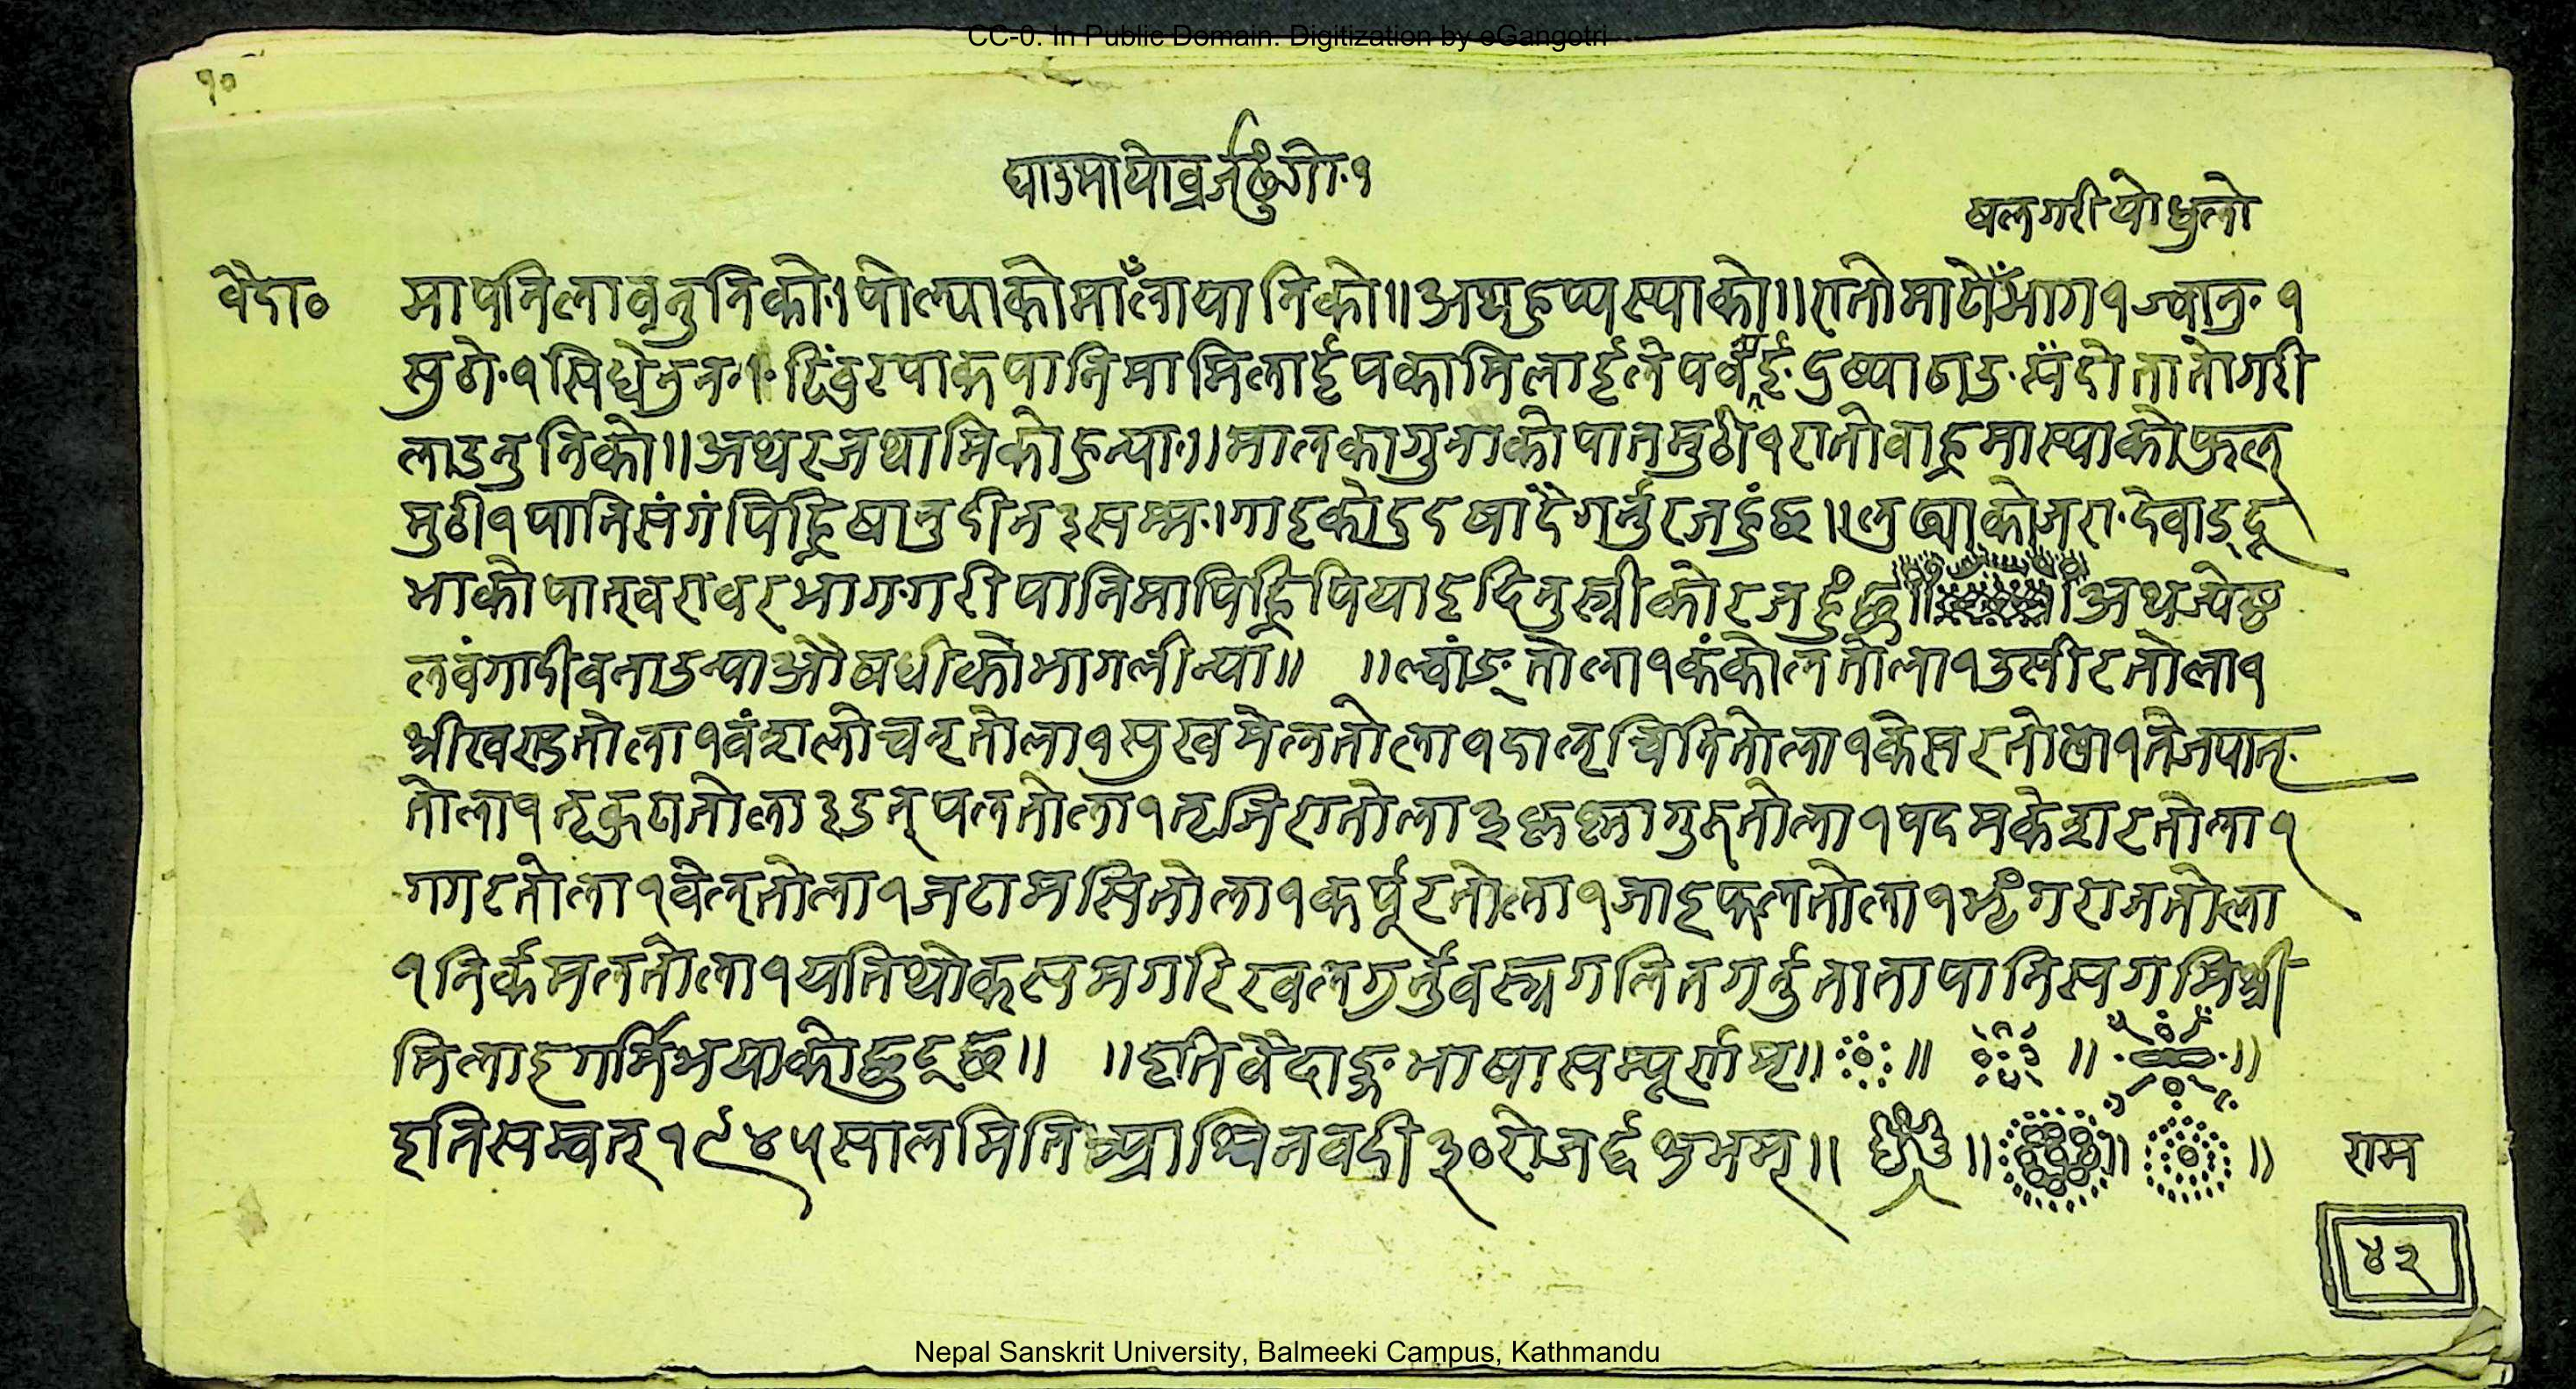 CC-0. In Public Domain. Digitization by eGangotri
१०
षलगरी यो धुलो
वैदा०
मा पनि लावनु निको। पोल्याको मा लाया निको॥ अथ हप्प स्याको॥ रातो माटो भाग १ ज्वानु १
सुठो १ सिधेनुन १ पानि मा मिलाई पकामिलाई लेप
लाउनु निको॥ अथ रज थामिको हन्या॥ मालकागुनाको पात मुठी १ रातो वाह्रमास्याको फूल्
मुठी १ पानि संगं पिंह्रि षानु दीन ३ सम्म। गाइको दुद षांदै गर्नु रज हुंछ॥ लुब्बाको जरा देवाड्दू
भाको पात वरावर भाग गरी पानिमा पिह्रि पियाइ दिनु स्त्रीको रज हुंछ॥ अथ ज्येष्ठ
लवंगादी वनाउन्या औषधीको भाग लीन्या॥ ॥ ल्वांङ् तोला १ कंकोल तोला १ उसीर तोला १
श्रीखण्ड तोला १ वंशलोचन तोला १ सुखमेल तोला १ दाल्चिनि तोला १ केसर तोला १ तेजपात्
तोला १ त्रुकुटा तोला ३ उत्पल तोला १ जिरा तोला ३ कृष्णागुरु तोला १ पदमकेशर तोला १
गगर तोला १ वेल् तोला १ जटामसि तोला १ कर्पूर तोला १ जाइफल तोला १ भृंगराज तोला
१ निर्कमल तोला १ यति थोक समगरि खल गर्नु वस्त्र गलित गर्नु ताता पानि सग मिश्री
मिलाइ गर्मि भयाको छुट्छ॥ ॥ इति वैदाङ्ग भाषा सम्पूर्णम्॥
इति सम्वत् १९४५ साल मिति आश्विन वदी ३० रोज ६ शुभम्॥
राम
४२
Nepal Sanskrit University, Balmeeki Campus, Kathmandu